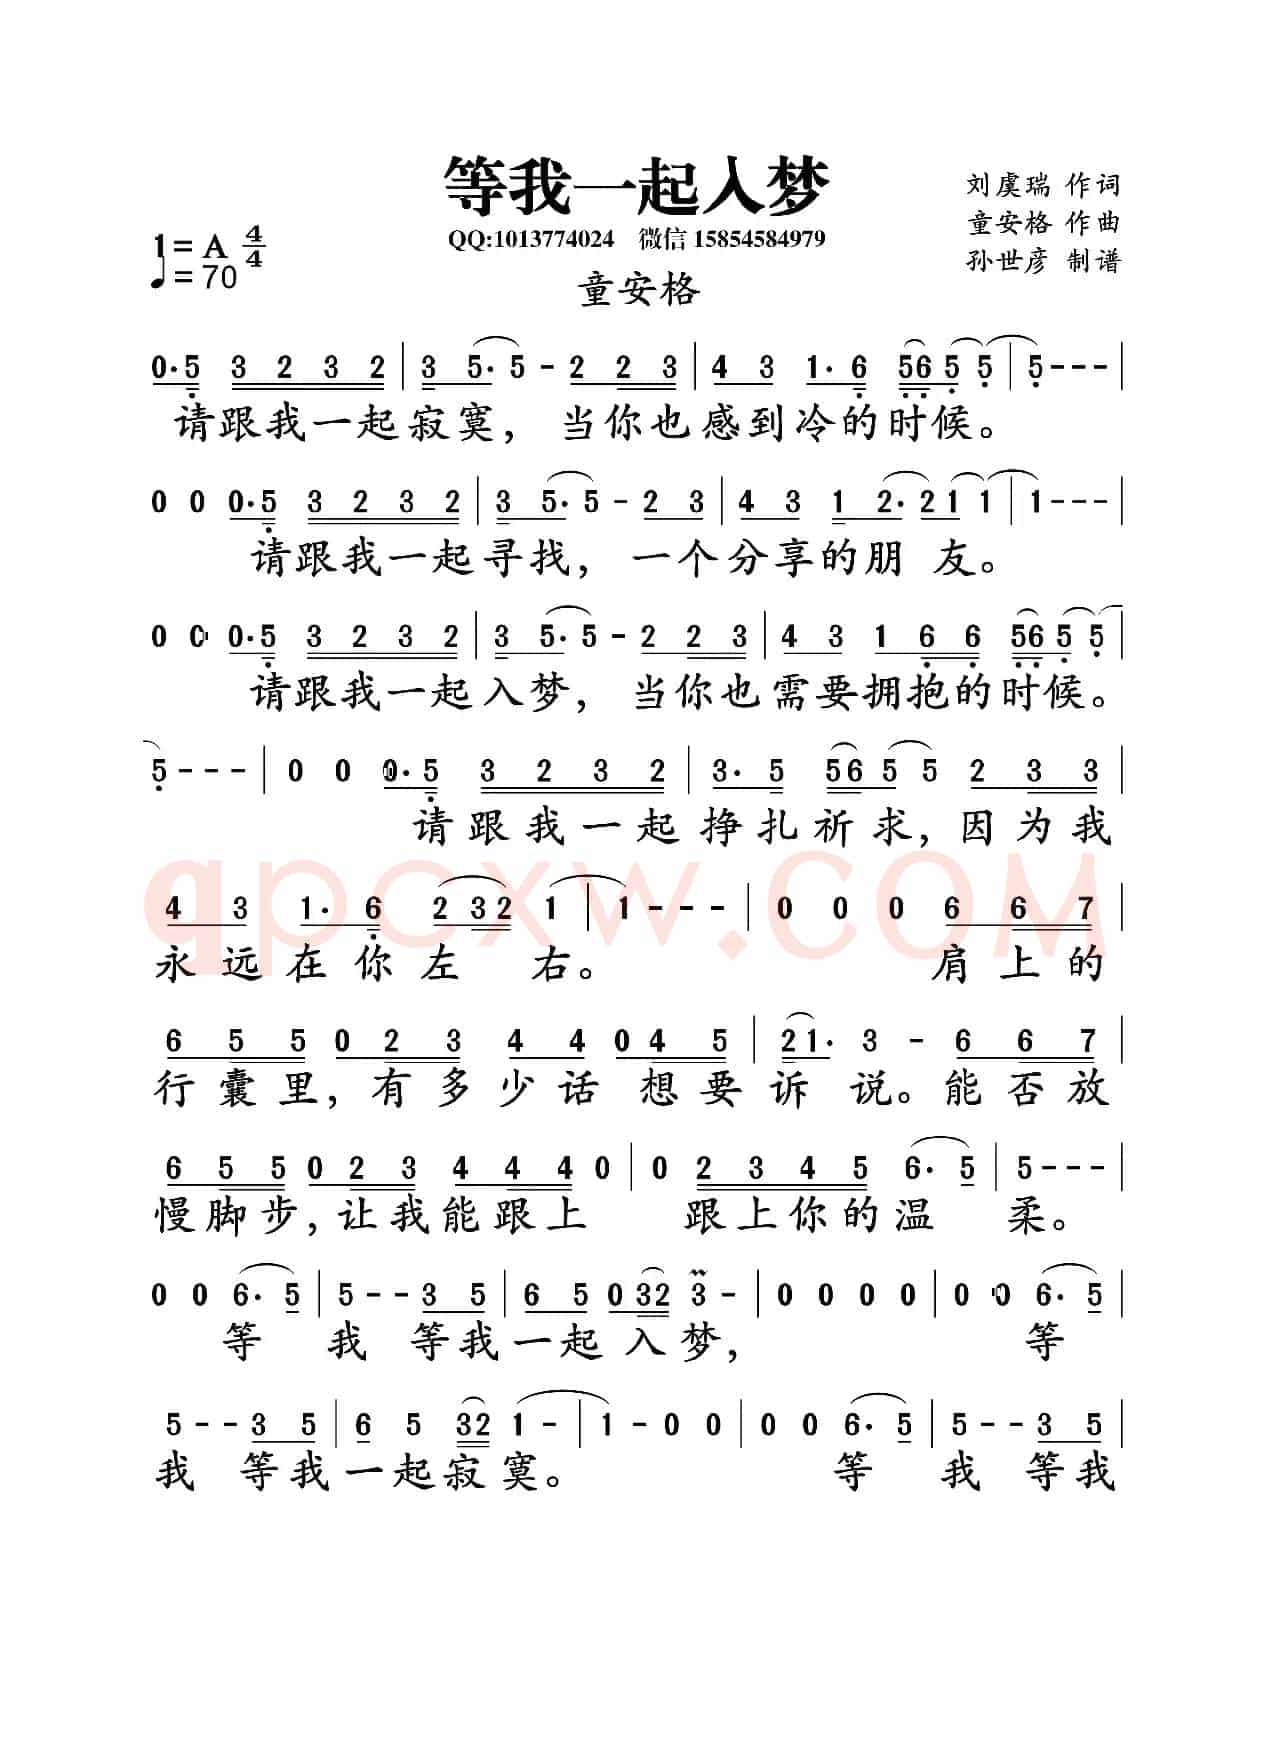 等我一起入梦
刘虞瑞 作词
1=A 4/4
QQ:1013774024 微信 15854584979
童安格 作曲
♩=70
童安格
孙世彦 制谱
0·5 3 2 3 2 | 3 5·5 - 2 2 3 | 4 3 1·6 56 5 5 | 5 - - - |
请跟我一起寂寞，当你也感到冷的时候。
0 0 0·5 3 2 3 2 | 3 5·5 - 2 3 | 4 3 1 2·21 1 | 1 - - - |
请跟我一起寻找，一个分享的朋 友。
0 0 0·5 3 2 3 2 | 3 5·5 - 2 2 3 | 4 3 1 6 6 56 5 5 |
请跟我一起入梦，当你也需要拥抱的时候。
5 - - - | 0 0 0·5 3 2 3 2 | 3·5 56 5 5 2 3 3 |
请跟我一起挣扎祈求，因为我
qpcxw.COM
4 3 1·6 2 32 1 | 1 - - - | 0 0 0 6 6 7 |
永远在你左 右。 肩上的
6 5 5 0 2 3 4 4 0 4 5 | 21·3 - 6 6 7 |
行囊里，有多少话 想要诉 说。能否放
6 5 5 0 2 3 4 4 4 0 | 0 2 3 4 5 6·5 | 5 - - - |
慢脚步，让我能跟上 跟上你的温 柔。
0 0 6·5 | 5 - - 3 5 | 6 5 0 32 3 - | 0 0 0 0 | 0 0 6·5 |
等 我 等我一起入梦， 等
5 - - 3 5 | 6 5 32 1 - | 1 - 0 0 | 0 0 6·5 | 5 - - 3 5 |
我 等我一起寂寞。 等 我 等我